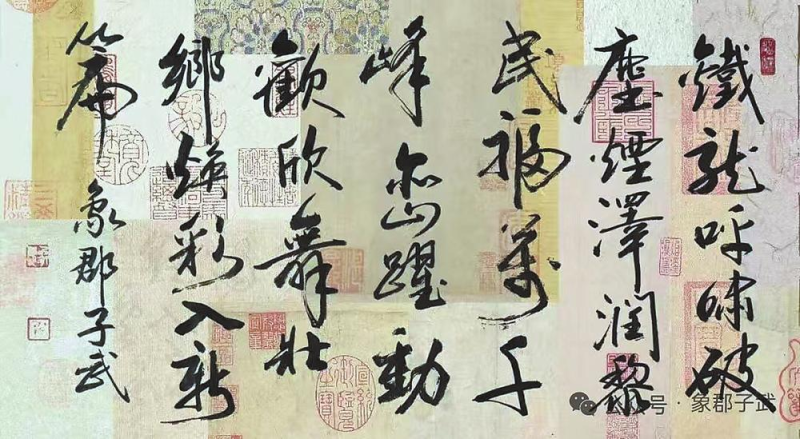 鐵龍呼嘯破
塵煙澤潤黎
民福萬千
峰峦躍動
歡欣舞壯
鄉煥彩入新
篇 象郡子武
公众号 · 象郡子武